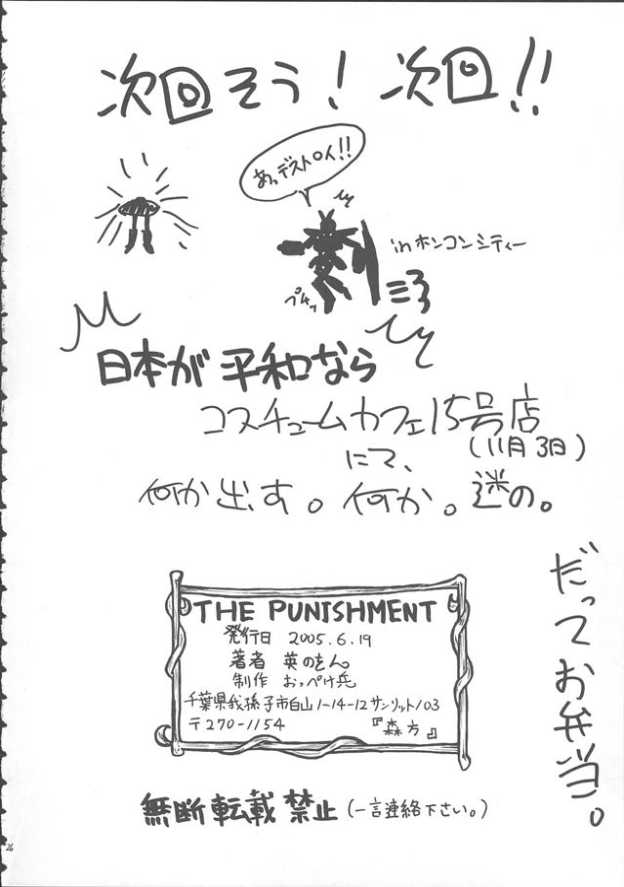 次回そう！次回!!
あっデストロイ!!
inホンコンシティー
プチッ
日本が平和なら
コスチュームカフェ15号店
(11月3日)
にて、
何か出す。何か。謎の。
だってお弁当。
THE PUNISHMENT
発行日 2005.6.19
著者 英のもん
制作 おっぺけ兵
千葉県我孫子市白山1-14-12サンリット103
〒270-1154 『森方』
無断転載禁止(一言連絡下さい。)